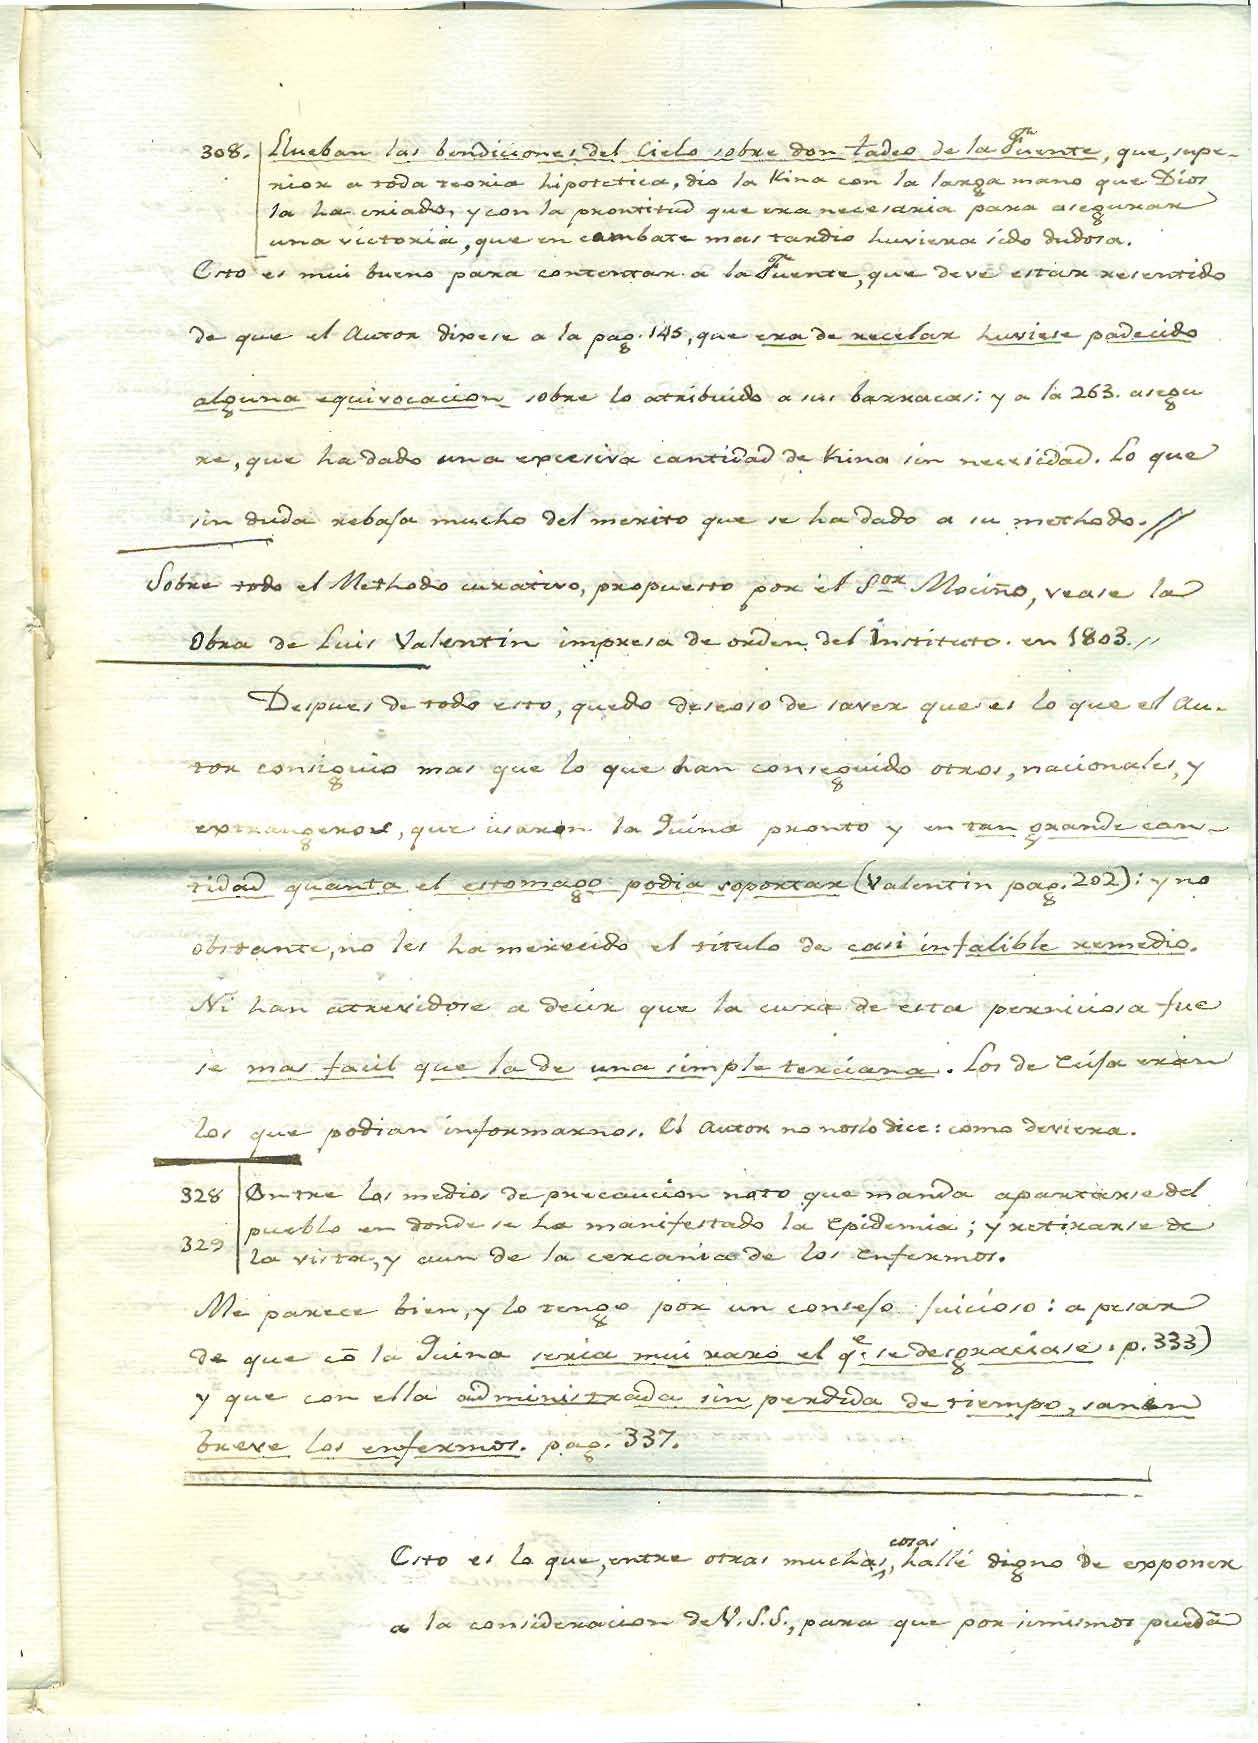 308. Llueban las bendiciones del Cielo sobre don tadeo de la Fuente, que, supe-
rior a toda teoria hipotetica, dio la Kina con la larga mano que Dios
la ha criado, y con la prontitud que era necesaria para asegurar
una victoria, que en combate mas tardio huviera sido dudosa.
Esto es mui bueno para contentar a la Fuente, que deve estar resentido
de que el Autor dixese a la pag. 145, que era de recelar huviese padecido
alguna equivocacion sobre lo atribuido a sus barracas: y a la 263. asegu
re, que ha dado una excesiva cantidad de Kina sin necesidad. Lo que
sin duda rebaja mucho del merito que se ha dado a su methodo.//
Sobre todo el Methodo curativo, propuesto por el Sor Mociño, vease la
Obra de Luis Valentin impresa de orden del Instituto. en 1803.//
Despues de todo esto, quedo deseoso de saver que es lo que el Au-
tor consiguio mas que lo que han conseguido otros, nacionales, y
extrangeros, que usaron la Quina pronto y en tan grande can-
tidad quanta el estomago podia soportar (Valentin pag. 202): y no
obstante, no les ha merecido el titulo de casi infalible remedio.
Ni han atrevidose a decir que la cura de esta perniciosa fue
se mas facil que la de una simple terciana. Los de Ecija eran
los que podian informarnos. El Autor no noslo dice: como deviera.
328 Entre los medios de precaucion noto que manda apartarse del
pueblo en donde se ha manifestado la Epidemia; y retirarse de
329 la vista, y aun de la cercania de los Enfermos.
Me parece bien, y lo tengo por un consejo juicioso: a pesar
de que cõ la Quina seria mui raro el qe. se desgraciase. p. 333)
y que con ella administrada sin perdida de tiempo, sanen
breve los enfermos. pag. 337.
Esto es lo que, entre otras muchas, cosas hallé digno de exponer
a la consideracion de V.S.S., para que por simismos puedã